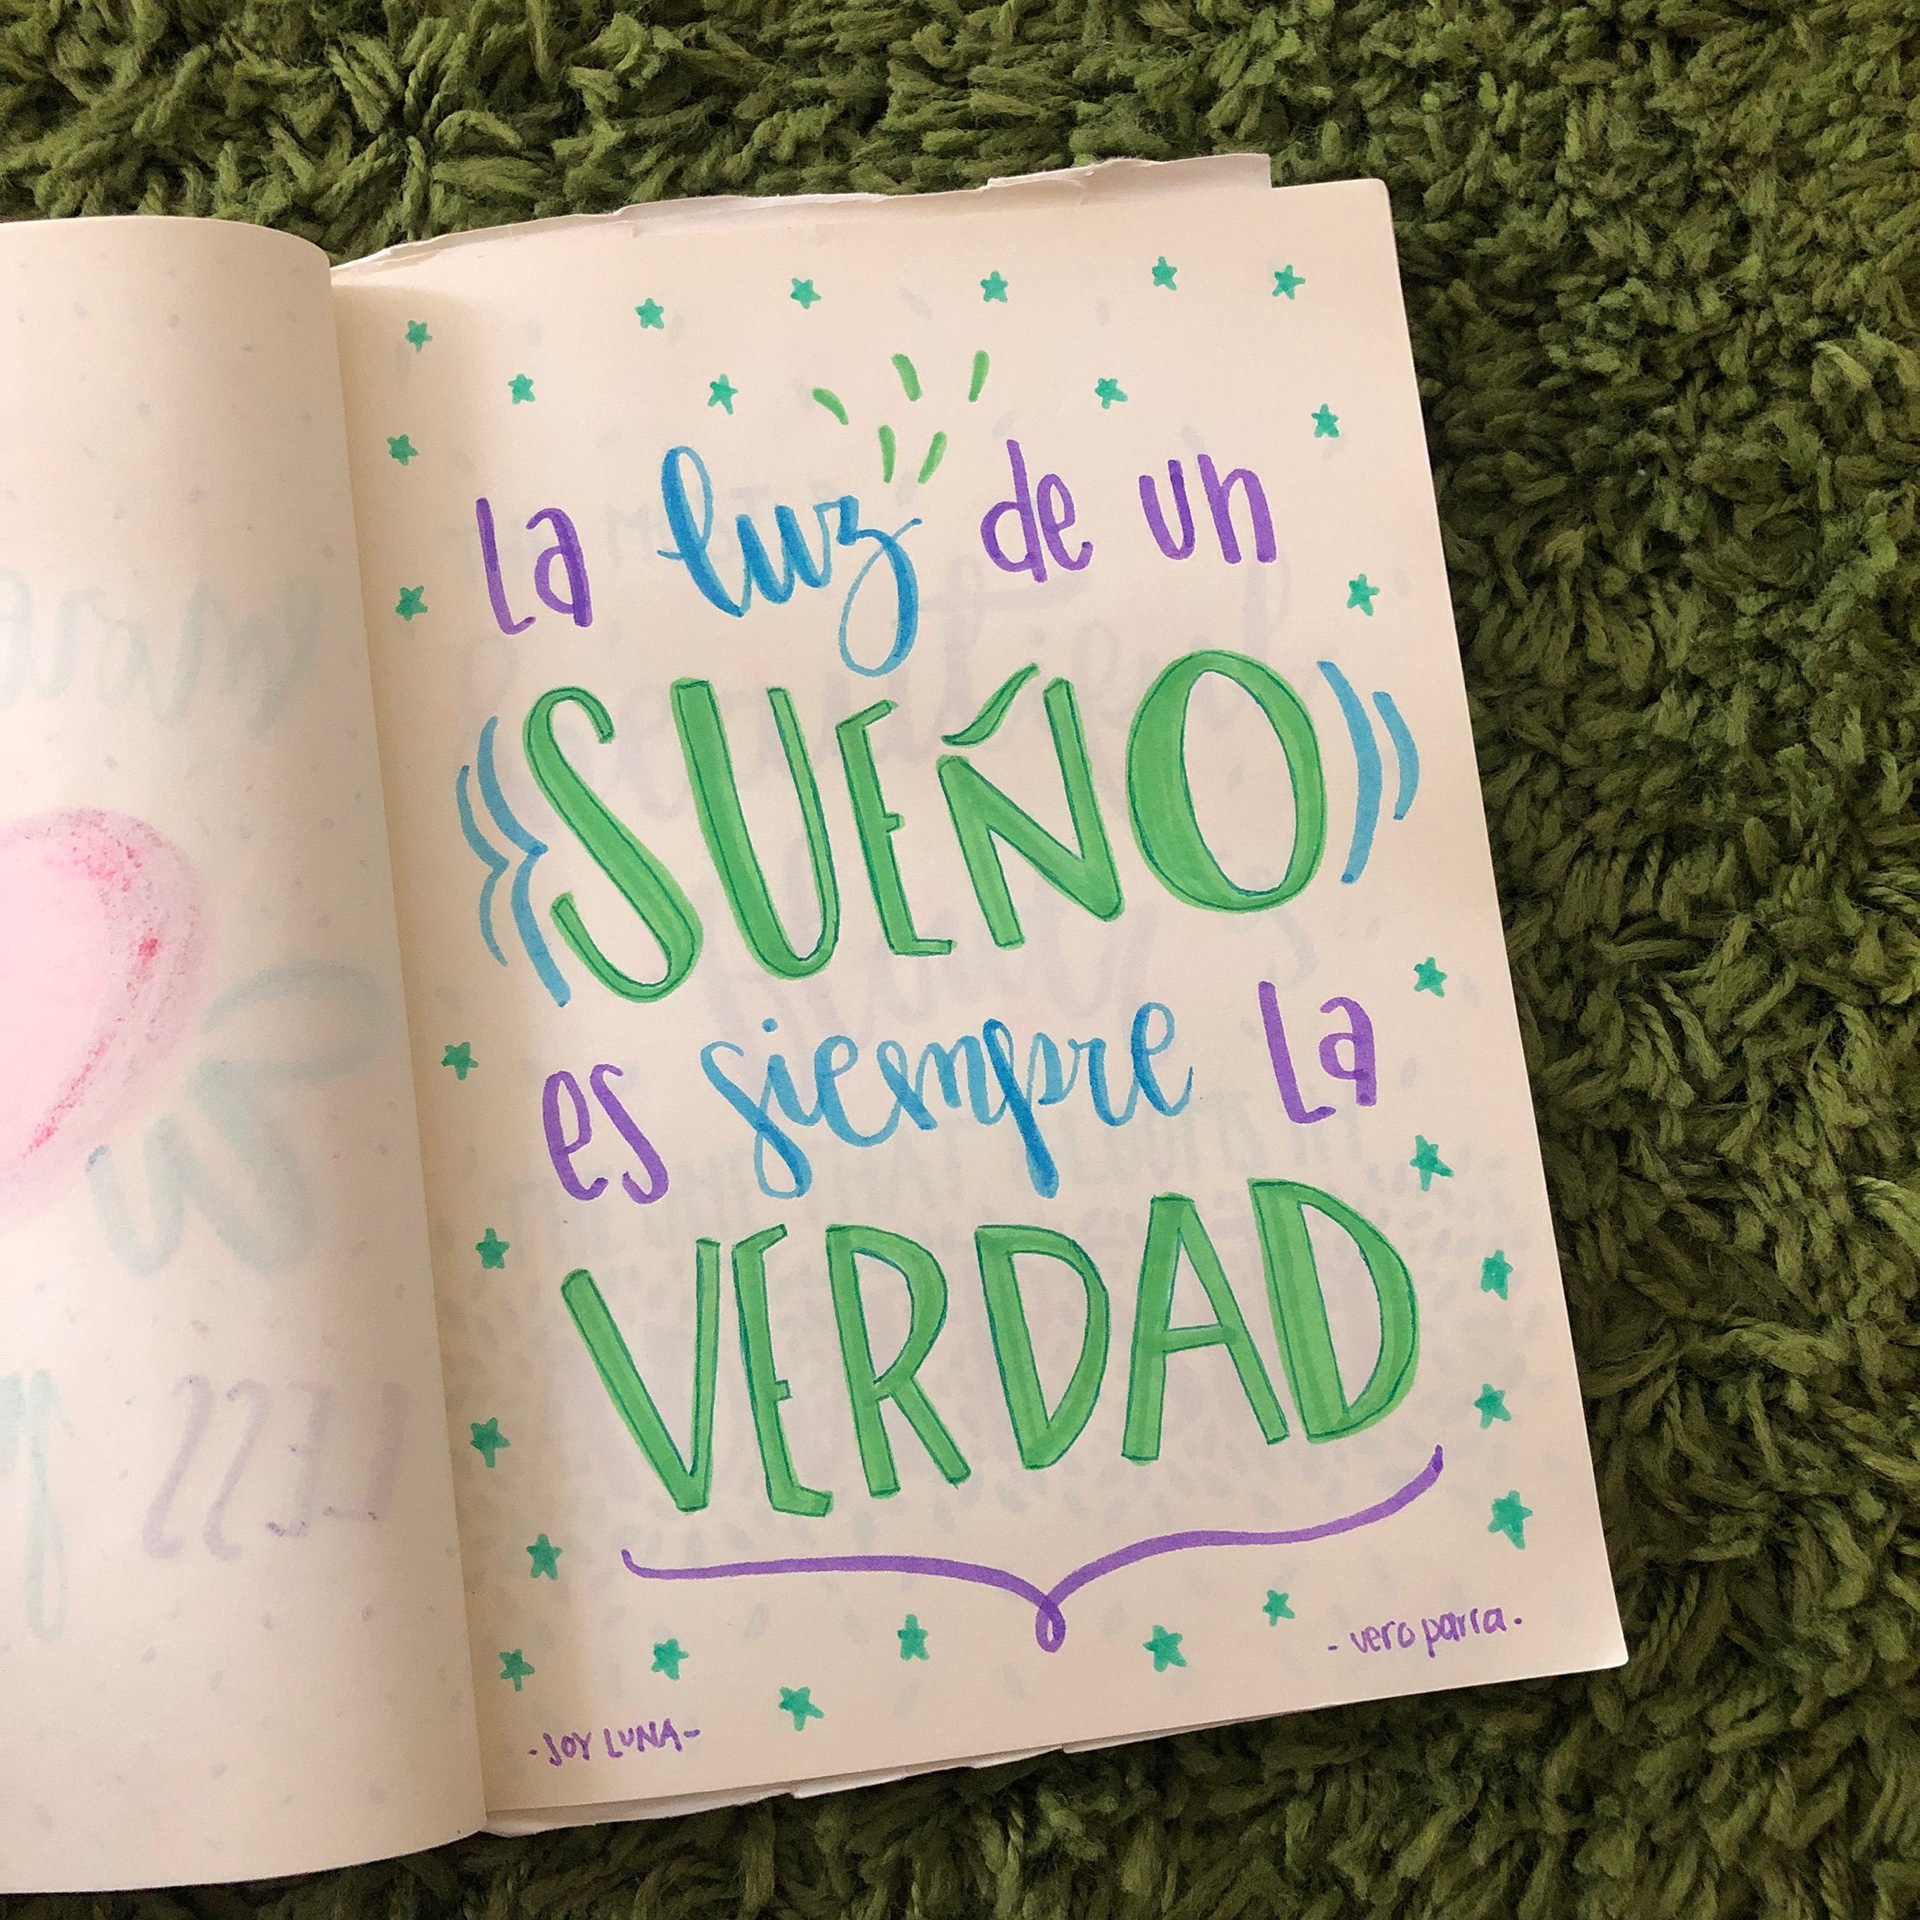 La luz de un
SUEÑO
es siempre la
VERDAD
- vero parra.
- JOY LUNA -